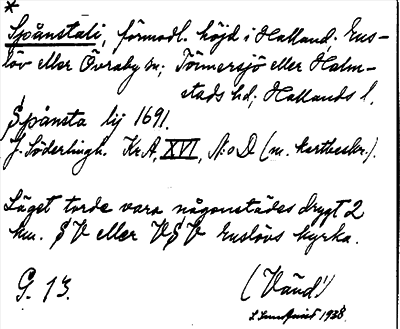 *
Spånstali, förmodl. höjd i Halland; Ens-
löv eller Övraby sn; Tönnersjö eller Halm-
stads hd; Hallands l.
Spånsta lij 1691.
J. Söderlingh. Kr.A. XVI, N:o D (m. kartbeskr.).
Läget torde vara någonstädes drygt 2
km. SV eller VSV Enslövs kyrka.
G. 13. (Vänd!)
1938.